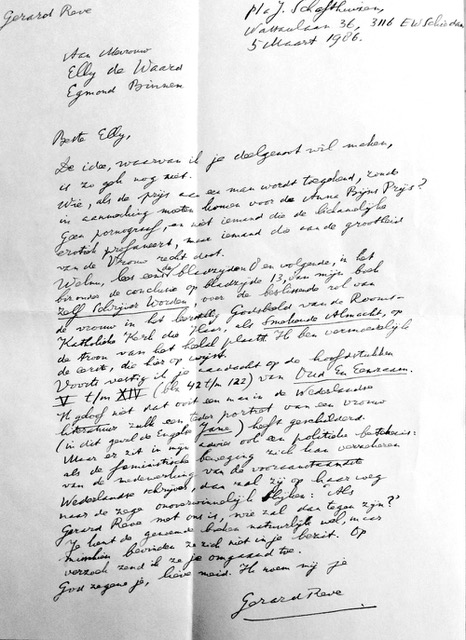 Gerard Reve
p/a J. Schafthuizen,
Nassaulaan 36, 3116 EW Schiedam
5 Maart 1986.
Aan Mevrouw
Elly de Waard
Egmond Binnen
Beste Elly,
De idee, waarvan ik je deelgenoot wil maken,
is zo gek nog niet.
Wie, als de prijs aan een man wordt toegekend, zoude
in aanmerking moeten komen voor de Anna Bijns Prijs?
Geen pornograaf, en niet iemand die de lichamelijke
erotiek profaneert, maar iemand die aan de grootheid
van de Vrouw recht doet.
Welnu, lees eens de bladzijden 8 en volgende, in het
bizonder de conclusie op bladzijde 13, van mijn boek
Zelf Schrijver Worden, over de beslissende rol van
de vrouw in het eerste, Godsbeeld van de Rooms-
Katholieke Kerk die Haar, als Smekende Almacht, op
de troon van het heelal plaatst. Ik ben vermoedelijk
de eerste, die hier op wijst.
Voorts vestig ik je aandacht op de hoofdstukken
V t/m XIV (blz 42 t/m 122) van Oud En Eenzaam.
Ik geloof niet dat ooit een man in de Nederlandse
literatuur zulk een teder portret van een vrouw
(in dit geval de Engelse Jane) heeft geschilderd.
Maar er zit in mijn advies ook een politieke betekenis:
als de feministische beweging zich kan verzekeren
van de medewerking van de vooraanstaandste
Nederlandse schrijver, dan zal zij op haar weg
naar de zege onoverwinnelijk blijken: 'Als
Gerard Reve met ons is, wie zal dan tegen zijn?'
Je kent de genoemde boeken natuurlijk wel, maar
misschien bevinden ze zich niet in je bezit. Op
verzoek zend ik ze je omgaand toe.
God zegene je, lieve meid. Ik noem mij je
Gerard Reve